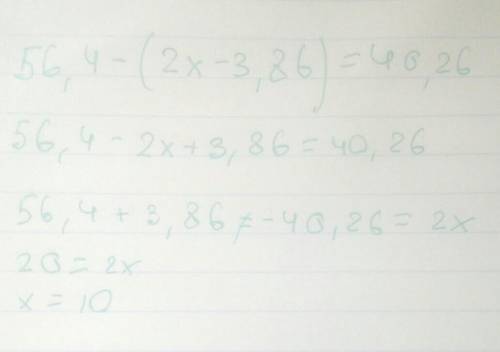 56,4-(2x-3,86)=40,26
56,4-2x+3,86=40,26
56,4+3,86≠-40,26=2x
20=2x
x=10